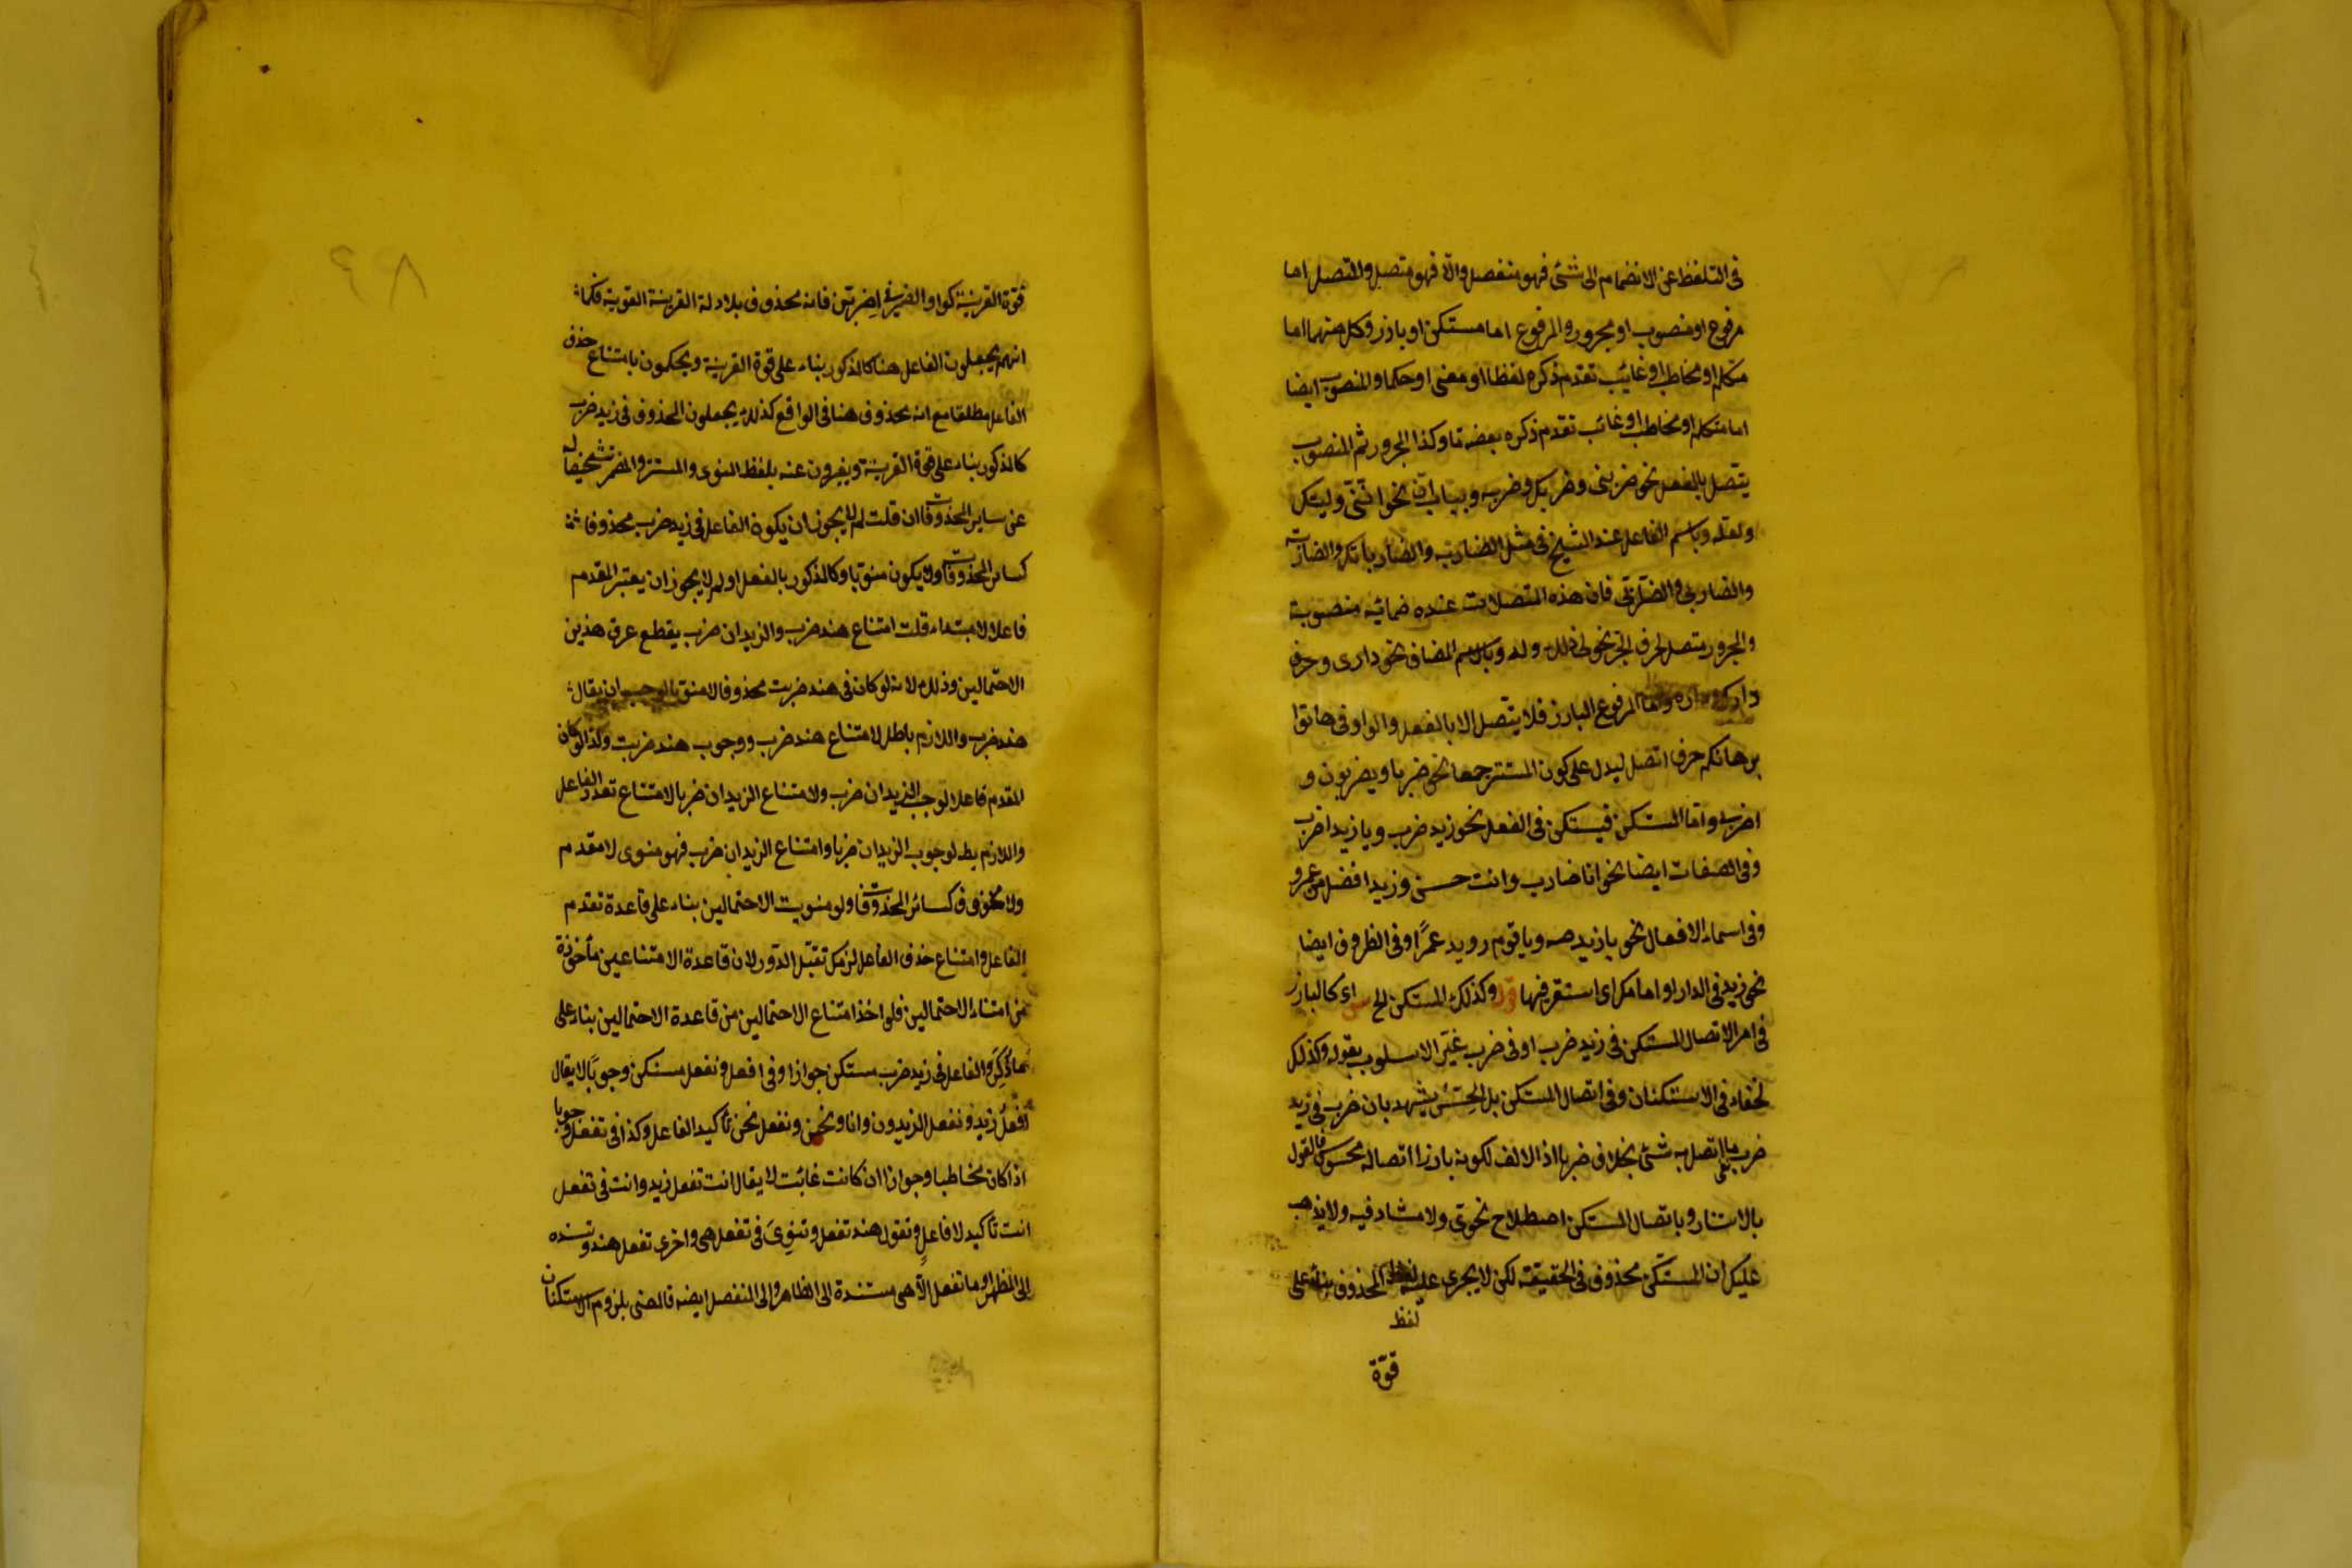 فى التلفظ عن الانضمام الى شئ فهو منفصل والّا فهو متصل والمتصل اما
مرفوع او منصوب او مجرور والمرفوع اما مستكن او بارز وكل منهما اما
متكلم او مخاطب او غائب تقدم ذكره لفظا او معنى او حكما والمنصوب ايضا
اما متكلم او مخاطب او غائب تقدم ذكره بعضه وكذا المجرور ثم المنصوب
يتصل بالفعل نحو ضربنى وضربك وضربه وبباب انّ نحو اننى وليتك
ولعله وباسم الفاعل عند الشيخ فى مثل الضاربه والضارباتك والضاربته
والضاربى والضاربتى فان هذه المتصلات عنده ضمائر منصوبة
والمجرور متصل بحرف الجر نحو لى ولك وله وبالاسم المضاف نحو دارى وحرف
دارك وداره واما المرفوع البارز فلا يتصل الا بالفعل والواو فى هاتوا
برهانكم حرف اتصل ليدل على كون المستتر جمعا نحو ضربا ويضربون و
اضربوا واما المستكن فيستكن فى الفعل نحو زيد ضرب ويا زيد اضرب
وفى الصفات ايضا نحو انا ضارب وانت حسن وزيد افضل من عمرو
وفى اسماء الافعال نحو يا زيد صه ويا قوم رويد عمرًا وفى الظروف ايضا
نحو زيد فى الدار او امامك اى استقر فيها قوله وكذلك المستكن الخ ش اى كالبارز
فى امر الاتصال المستكن فى زيد ضرب او فى ضرب غيّر الاسلوب بقوله وكذلك
لخفاء فى الاستكنان وفى اتصال المستكن بل الحسّ يشهد بان ضرب فى زيد
ضرب ما اتصل به شئ بخلاف ضربا اذ الالف لكونه بارزا اتصاله محسوس فالقول
بالاستتار وباتصال المستكن اصطلاح نحوى ولا مشاد فيه ولا يذهب
عليك ان المستكن محذوف فى الحقيقة لكن لا يجرى عليه لفظ المحذوف بناء على
لفظ
قوّة
قوّة القرينة كواو الضمير فى اضربنّ فانه محذوف بلا دلة القرينة القوية فكما
انهم يجعلون الفاعل هنا كالمذكور بناء على قوة القرينة ويحكمون بامتناع حذف
الفاعل مطلقا مع انه محذوف هنا فى الواقع كذلك يجعلون المحذوف فى زيد ضرب
كالمذكور بناء على قوة القرينة ويعبرون عنه بلفظ المنوى والمستتر والمضمر تشخيصا له
عن ساير المحذوفات فان قلت لم لا يجوز ان يكون الفاعل فى زيد ضرب محذوفا
كسائر المحذوفات ولا يكون منويا وكالمذكور بالفعل او لم لا يجوز ان يعتبر المقدم
فاعلا لا مبتداء قلت امتناع هند ضرب والزيدان ضرب يقطع عرق هذين
الاحتمالين وذلك لانه لو كان فى هند ضربت محذوفا لا منويا لوجب ان يقال
هند ضرب واللازم باطل لامتناع هند ضرب ووجوب هند ضربت ولذا لو كان
المقدم فاعلا لوجب الزيدان ضرب ولامتناع الزيدان ضربا لامتناع تعدد الفاعل
واللازم بط لوجوب الزيدان ضربا وامتناع الزيدان ضرب فهو منوى لا مقدم
ولا محذوف كسائر المحذوفات ولو منويت الاحتمالين بناء على قاعدة تقدم
الفاعل وامتناع حذف الفاعل لزمك تقبّل الدّور لان قاعدة الامتناعين مأخوذة
من امتناع الاحتمالين فلو اخذ امتناع الاحتمالين من قاعدة الاحتمالين بناء على
ما ذُكِرَ والفاعل فى زيد ضرب مستكن جوازا وفى افعل ونفعل مستكن وجوبًا لا يقال
افعل زيد ونفعل الزيدون وانا ونحن ونفعل نحن تأكيد الفاعل وكذا فى تفعل وجوبا
اذا كان مخاطبا وجوازا ان كانت غائبت لا يقال انت تفعل زيد وانت فى تفعل
انت تأكيد لا فاعل وتقول هند تفعل وتنوى فى تفعل هى واخرى تفعل هند وتسنده
الى المظهر وما تفعل الّا هى مستندة الى الظاهر والى المنفصل ايضه قالصنى بلزوم الاستكنان